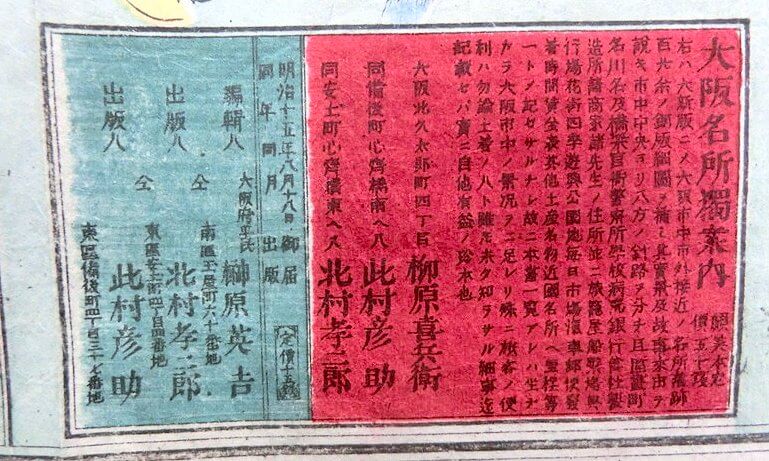 大阪名所獨案内
美本也
價五十錢
右ハ大新版ニメ大阪市中市外接近ノ名所舊跡
百六余ノ銅版細圖ヲ補ヒ其實景及故事來由ヲ
説キ市中中央ヨリ八方ノ針路ヲ分チ且區畫町
名川名及橋梁官衙警察所學校病院銀行會社製
造所諸商家諸先生ノ住所並ニ旅籠屋船
行場花街四季遊興公園地毎日市場滊車郵便發
着時間賃金表其他土産名物近國名所ヘ里程等
一トノ記セサルナシ故ニ本書一覧アレハ坐ナ
カラ大阪市中ノ景況ヲニ足レリ殊ニ旅客ノ便
利ハ勿論土着ノ人ト雖モ未タ知ラサル細事迄
記載セバ實ニ自他有益ノ珍本也
大阪北久太郎町四丁目 柳原喜兵衛
同備後町心齋橋南ヘ入 此村彦助
同安土町心齋橋東ヘ入 北村孝二郎
明治十五年八月十八日御届
同年同月出版 定價十五錢
編輯人 大阪府平民 榊原英吉
南區屋町六十一番地
出版人 仝 北村孝二郎
東區安土町四丁目四番地
出版人 仝 此村彦助
東區備後町四丁目三十七番地